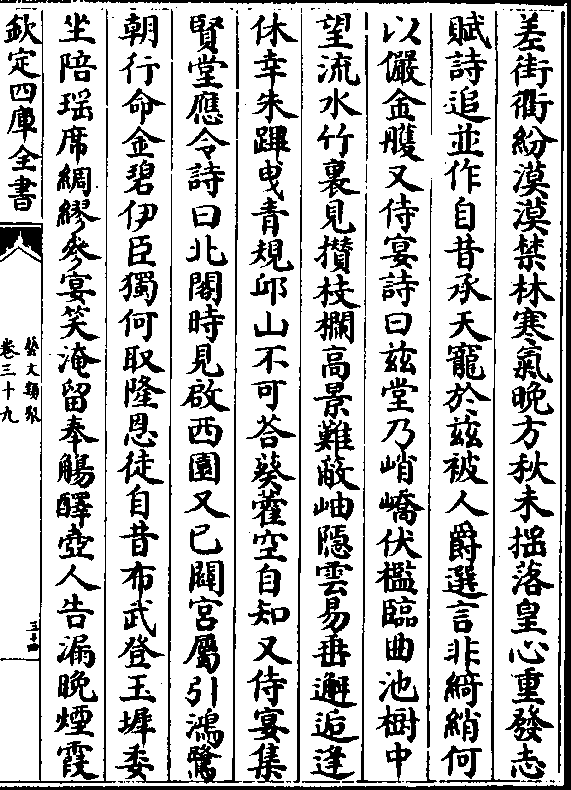 差街衢紛漠漠禁林寒氣晚方秋未揺落皇心重發志
賦詩追並作自昔承天寵於兹被人爵選言非綺綃何
以儼金艧又侍宴詩曰兹堂乃峭嶠伏檻臨曲池樹中
望流水竹裏見攢枝欄高景難蔽岫隱雲易垂邂逅逢
休幸朱蹕曳青規邱山不可荅葵藿空自知又侍宴集
賢堂應令詩曰北閣時見啟西園又已闢宮屬引鴻鷺
朝行命金碧伊臣獨何取隆恩徒自昔布武登玉墀委
坐陪瑶席綢繆參宴笑淹留奉觴醳壺人告漏晚煙霞
欽定四庫全書
藝文類聚
卷三十九
三十四